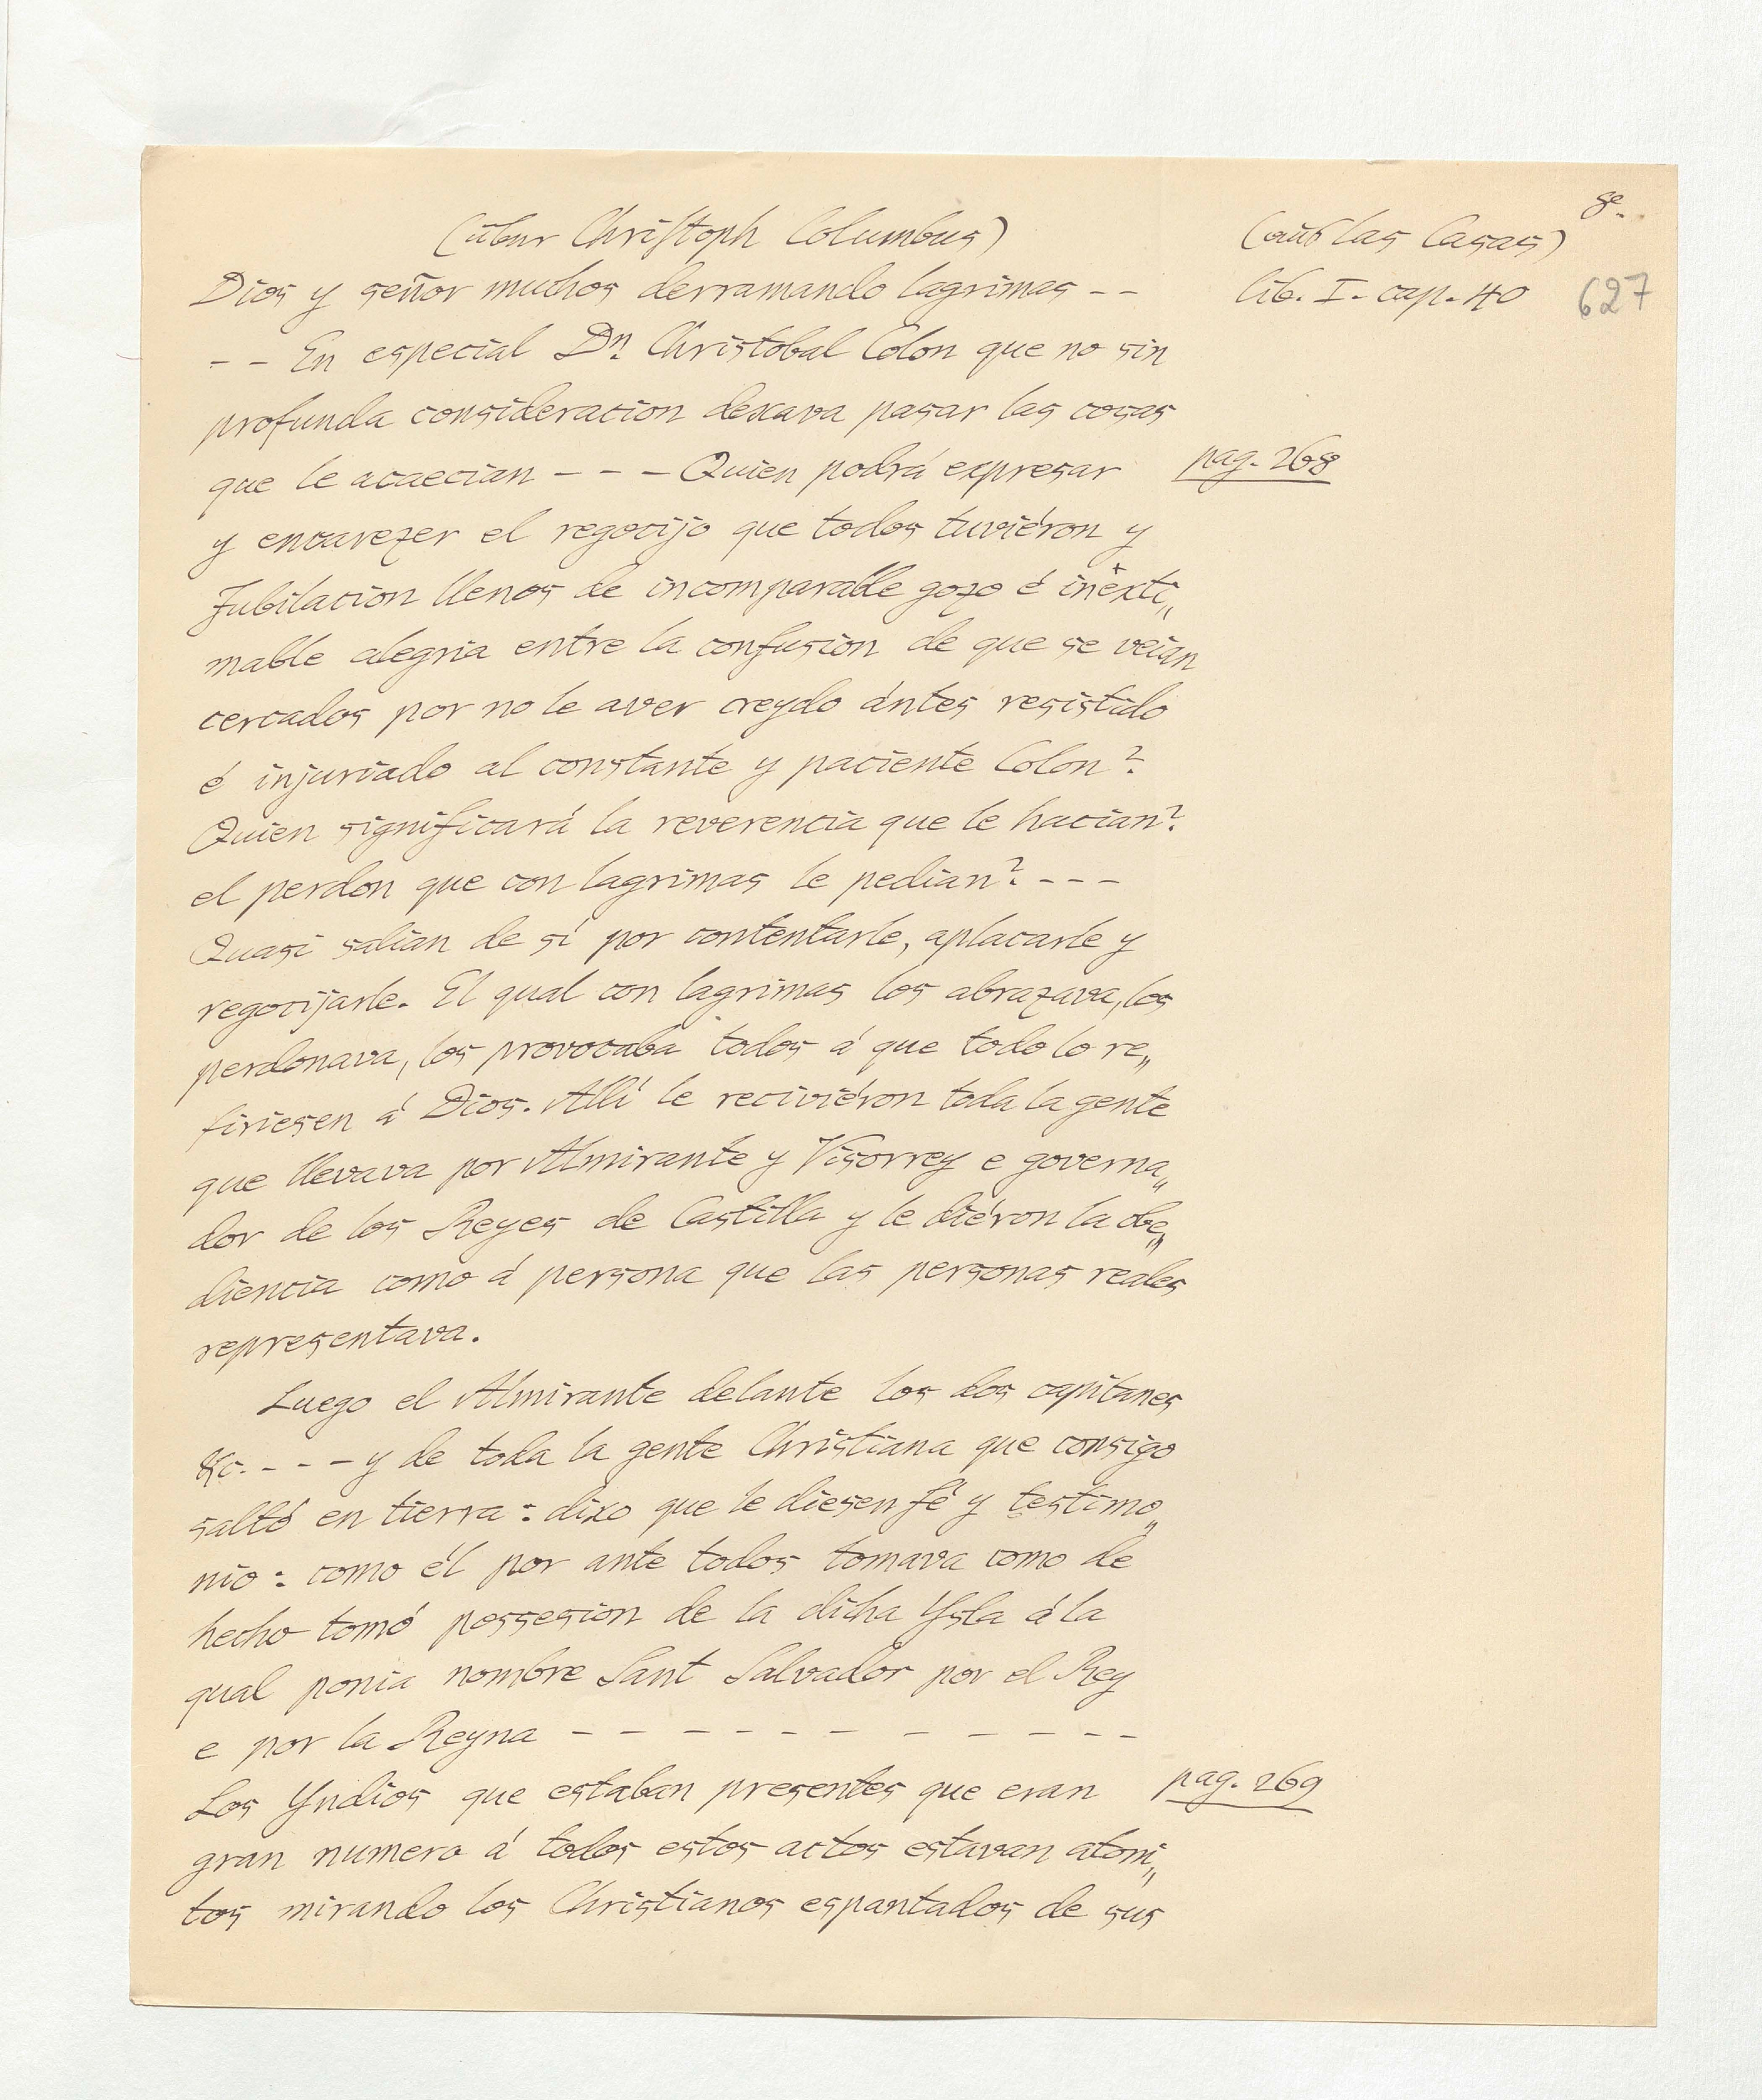 8.
(über Christoph Columbus)
(aus las Casas)
Dios y señor muchos derramando lagrimas - -
lib. I. cap. 40
627
- - En especial Dn. Christobal Colon que no sin
profunda consideracion dexava pasar las cosas
que le acaecian - - - Quien podrá expresar
pag. 268
y encavezer el regocijo que todos tuviéron y
Jubilacion llenos de incomparable gozo é inexti„
mable alegria entre la confusion de que se veian
cercados por no le aver creydo ántes resistido
é injuriado al constante y paciente Colon?
Quien significará la reverencia que le hacian?
el perdon que con lagrimas le pedian? - - -
Quasi salian de sí por contentarle, aplacarle y
regocijarle. El qual con lagrimas los abrazava, los
perdonava, los provocaba todos á que todo lo re„
firiesen á Dios. Allí le reciviéron toda la gente
que llevava por Almirante y Visorrey e governa„
dor de los Reyes de Castilla y le diéron la obe„
diencia como á persona que las personas reales
representava.
Luego el Almirante delante los dos capitanes
&c. - - - y de toda la gente Christiana que consigo
saltó en tierra: dixo que le diesen fé y testimo„
nio: como él por ante todos tomava como de
hecho tomó possesion de la dicha Ysla á la
qual ponia nombre Sant Salvador por el Rey
e por la Reyna - - - - - - - - - - -
Los Yndios que estaban presentes que eran
pag. 269
gran numero á todos estos actos estavan atoni„
tos mirando los Christianos espantados de sus